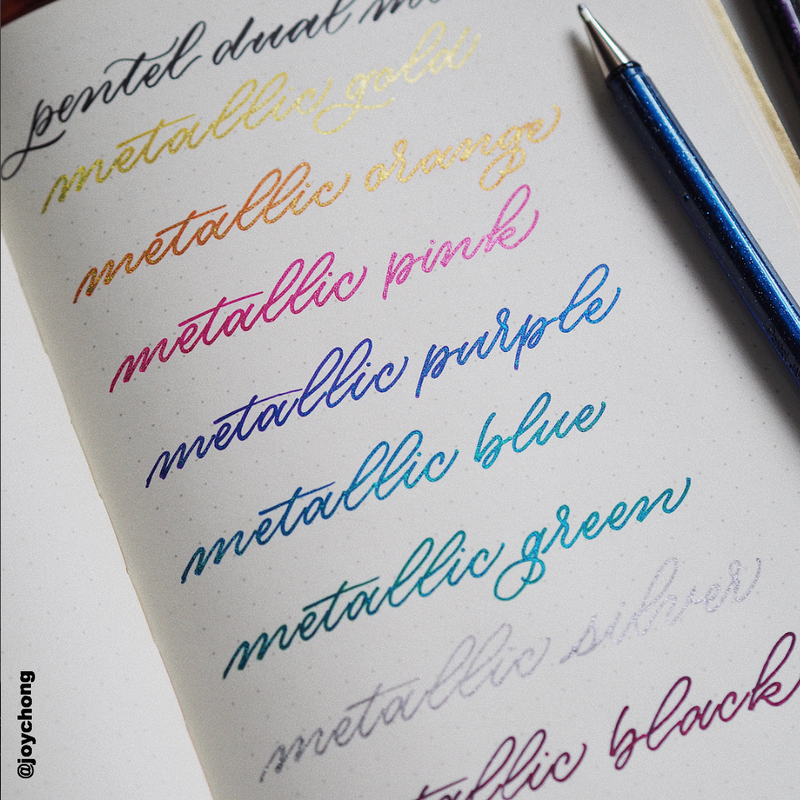 pentel dual
metallic gold
metallic orange
metallic pink
metallic purple
metallic blue
metallic green
metallic silver
black
@joychong